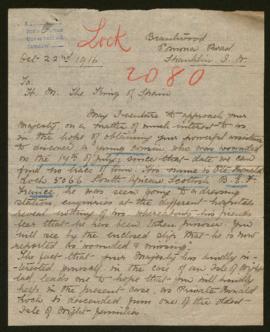 Lock
Brambwood
Pomona Road
Shanklin I. W.
Oct. 22nd 1916
2080
To
H. M. The King of Spain
May I venture to approach your
Majesty on a matter of much interest to us
in the hope of obtaining your powerful assistance
to discover a young man who was wounded
on the 19th of July; since that date we can
find no trace of him. His name is Pte Donald
Loch 5066 South African Scottish B.E.F.
France he was seen going to a dressing
station enquiries at the different hospitals
reveal nothing of his whereabouts his friends
fear that he has been taken prisoner. You
will see by the enclosed slip that he is now
reported as wounded & missing.
The fact that your Majesty has kindly in-
terested yourself in the case of an Isle of Wight
lad, leads one to hope that you will kindly
help in the present case, as Private Donald
Loch is descended from one of the oldest
Isle of Wight families